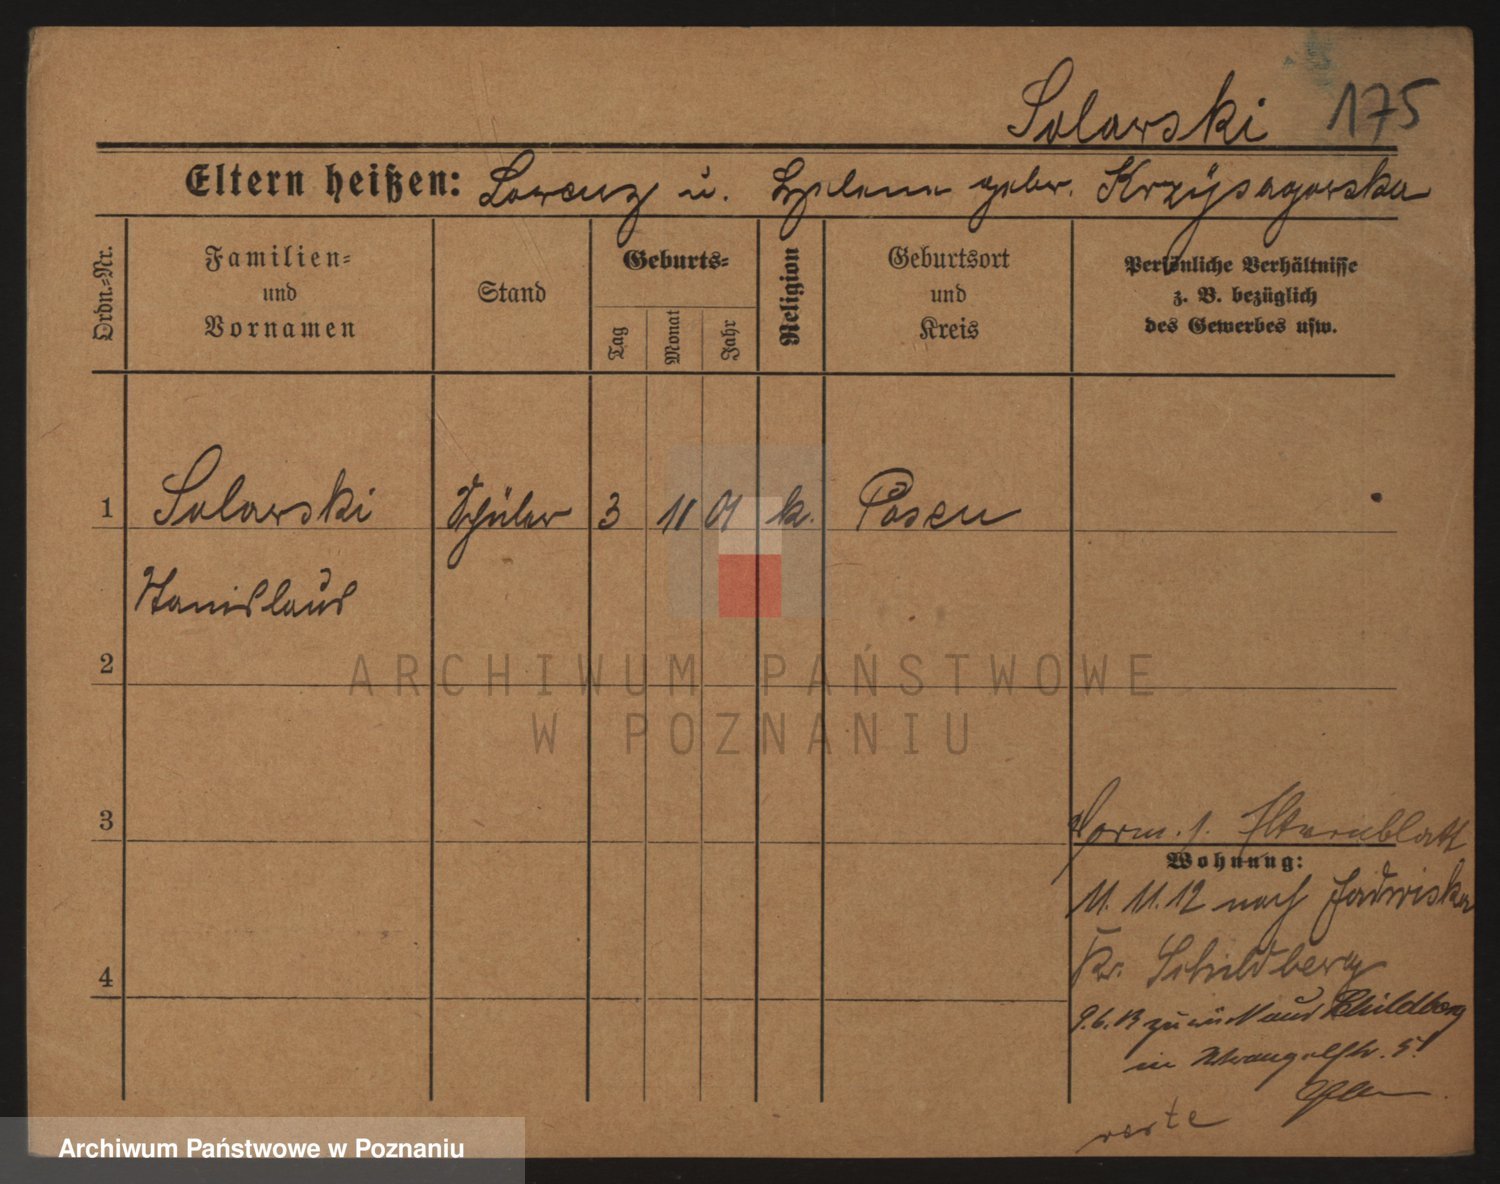 Solarski 175
Eltern heißen: Lorenz u. Helene gebr. Krzysagorska
Ordn.-Nr.
Familien-
und
Vornamen
Stand
Geburts-
Tag
Monat
Jahr
Religion
Geburtsort
und
Kreis
Persönliche Verhältnisse
z. B. bezüglich
des Gewerbes usw.
1 Solarski Schüler 3 11 01 k. Posen
Stanislaus
2
ARCHIWUM PAŃSTWOWE
W POZNANIU
3
Form. s. Elternblatt
Wohnung:
11. 11. 12 nach
4
Kr. Schildberg
9.6.13 zurück aus Schildberg
in Wrangelstr. 5.
Archiwum Państwowe w Poznaniu